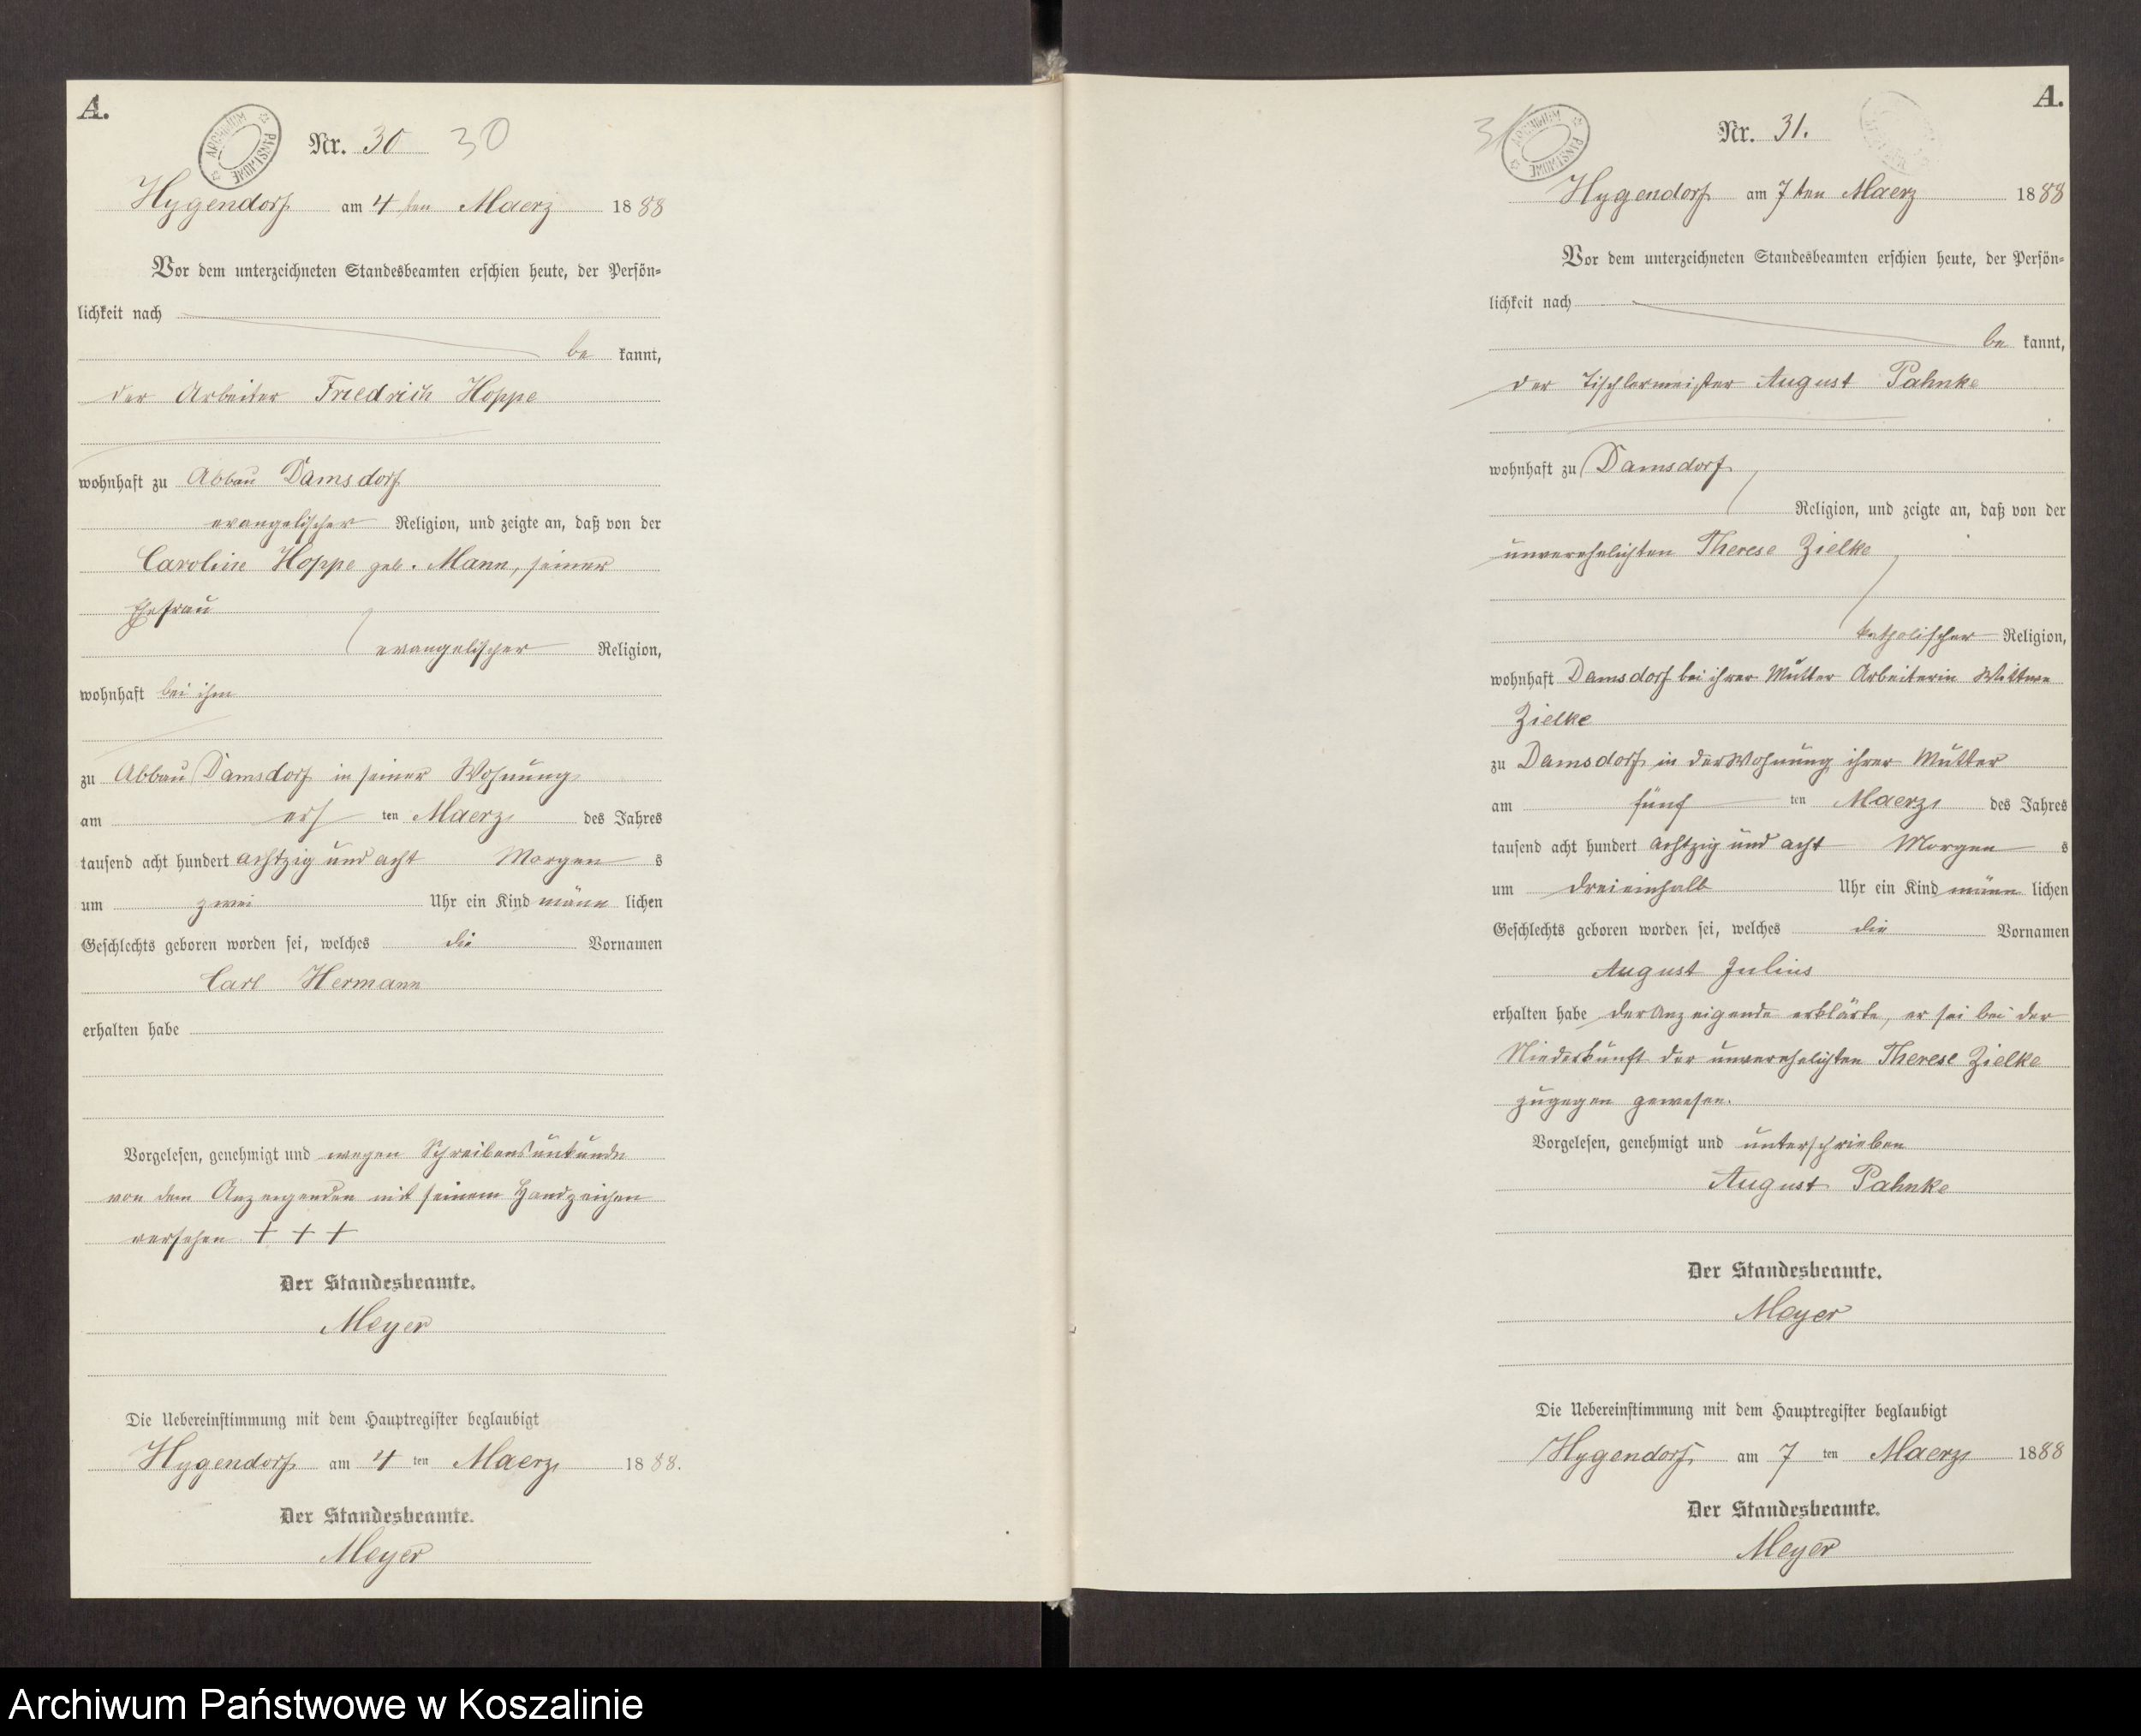 A.
ARCHIWUM PAŃSTWOWE
Nr. 30 30
Hygendorf am 4 ten Maerz 1888
Vor dem unterzeichneten Standesbeamten erschien heute, der Persön-
lichkeit nach
be kannt,
der Arbeiter Friedrich Hoppe
wohnhaft zu Abbau Damsdorf
evangelischer Religion, und zeigte an, daß von der
Caroline Hoppe geb. Mann, seiner
Ehefrau
evangelischer Religion,
wohnhaft bei ihm
zu Abbau Damsdorf in seiner Wohnung
am ers ten Maerz des Jahres
tausend acht hundert achtzig und acht Morgen s
um zwei Uhr ein Kind männ lichen
Geschlechts geboren worden sei, welches die Vornamen
Carl Hermann
erhalten habe
Vorgelesen, genehmigt und wegen Schreibensunkunde
von dem Anzeigenden mit seinem Handzeichen
versehen + + +
Der Standesbeamte.
Meyer
Die Uebereinstimmung mit dem Hauptregister beglaubigt
Hygendorf am 4 ten Maerz 1888.
Der Standesbeamte.
Meyer
A.
31 ARCHIWUM PAŃSTWOWE
Nr. 31.
Hygendorf am 7 ten Maerz 1888
Vor dem unterzeichneten Standesbeamten erschien heute, der Persön-
lichkeit nach
be kannt,
der Tischlermeister August Pahnke
wohnhaft zu Damsdorf
Religion, und zeigte an, daß von der
unverehelichten Therese Zielke
katholischer Religion,
wohnhaft Damsdorf bei ihrer Mutter Arbeiterin Wittwe
Zielke
zu Damsdorf in der Wohnung ihrer Mutter
am fünf ten Maerz des Jahres
tausend acht hundert achtzig und acht Morgen s
um dreieinhalb Uhr ein Kind männ lichen
Geschlechts geboren worden sei, welches die Vornamen
August Julius
erhalten habe der Anzeigende erklärte, er sei bei der
Niederkunft der unverehelichten Therese Zielke
zugegen gewesen.
Vorgelesen, genehmigt und unterschrieben
August Pahnke
Der Standesbeamte.
Meyer
Die Uebereinstimmung mit dem Hauptregister beglaubigt
Hygendorf am 7 ten Maerz 1888
Der Standesbeamte.
Meyer
Archiwum Państwowe w Koszalinie